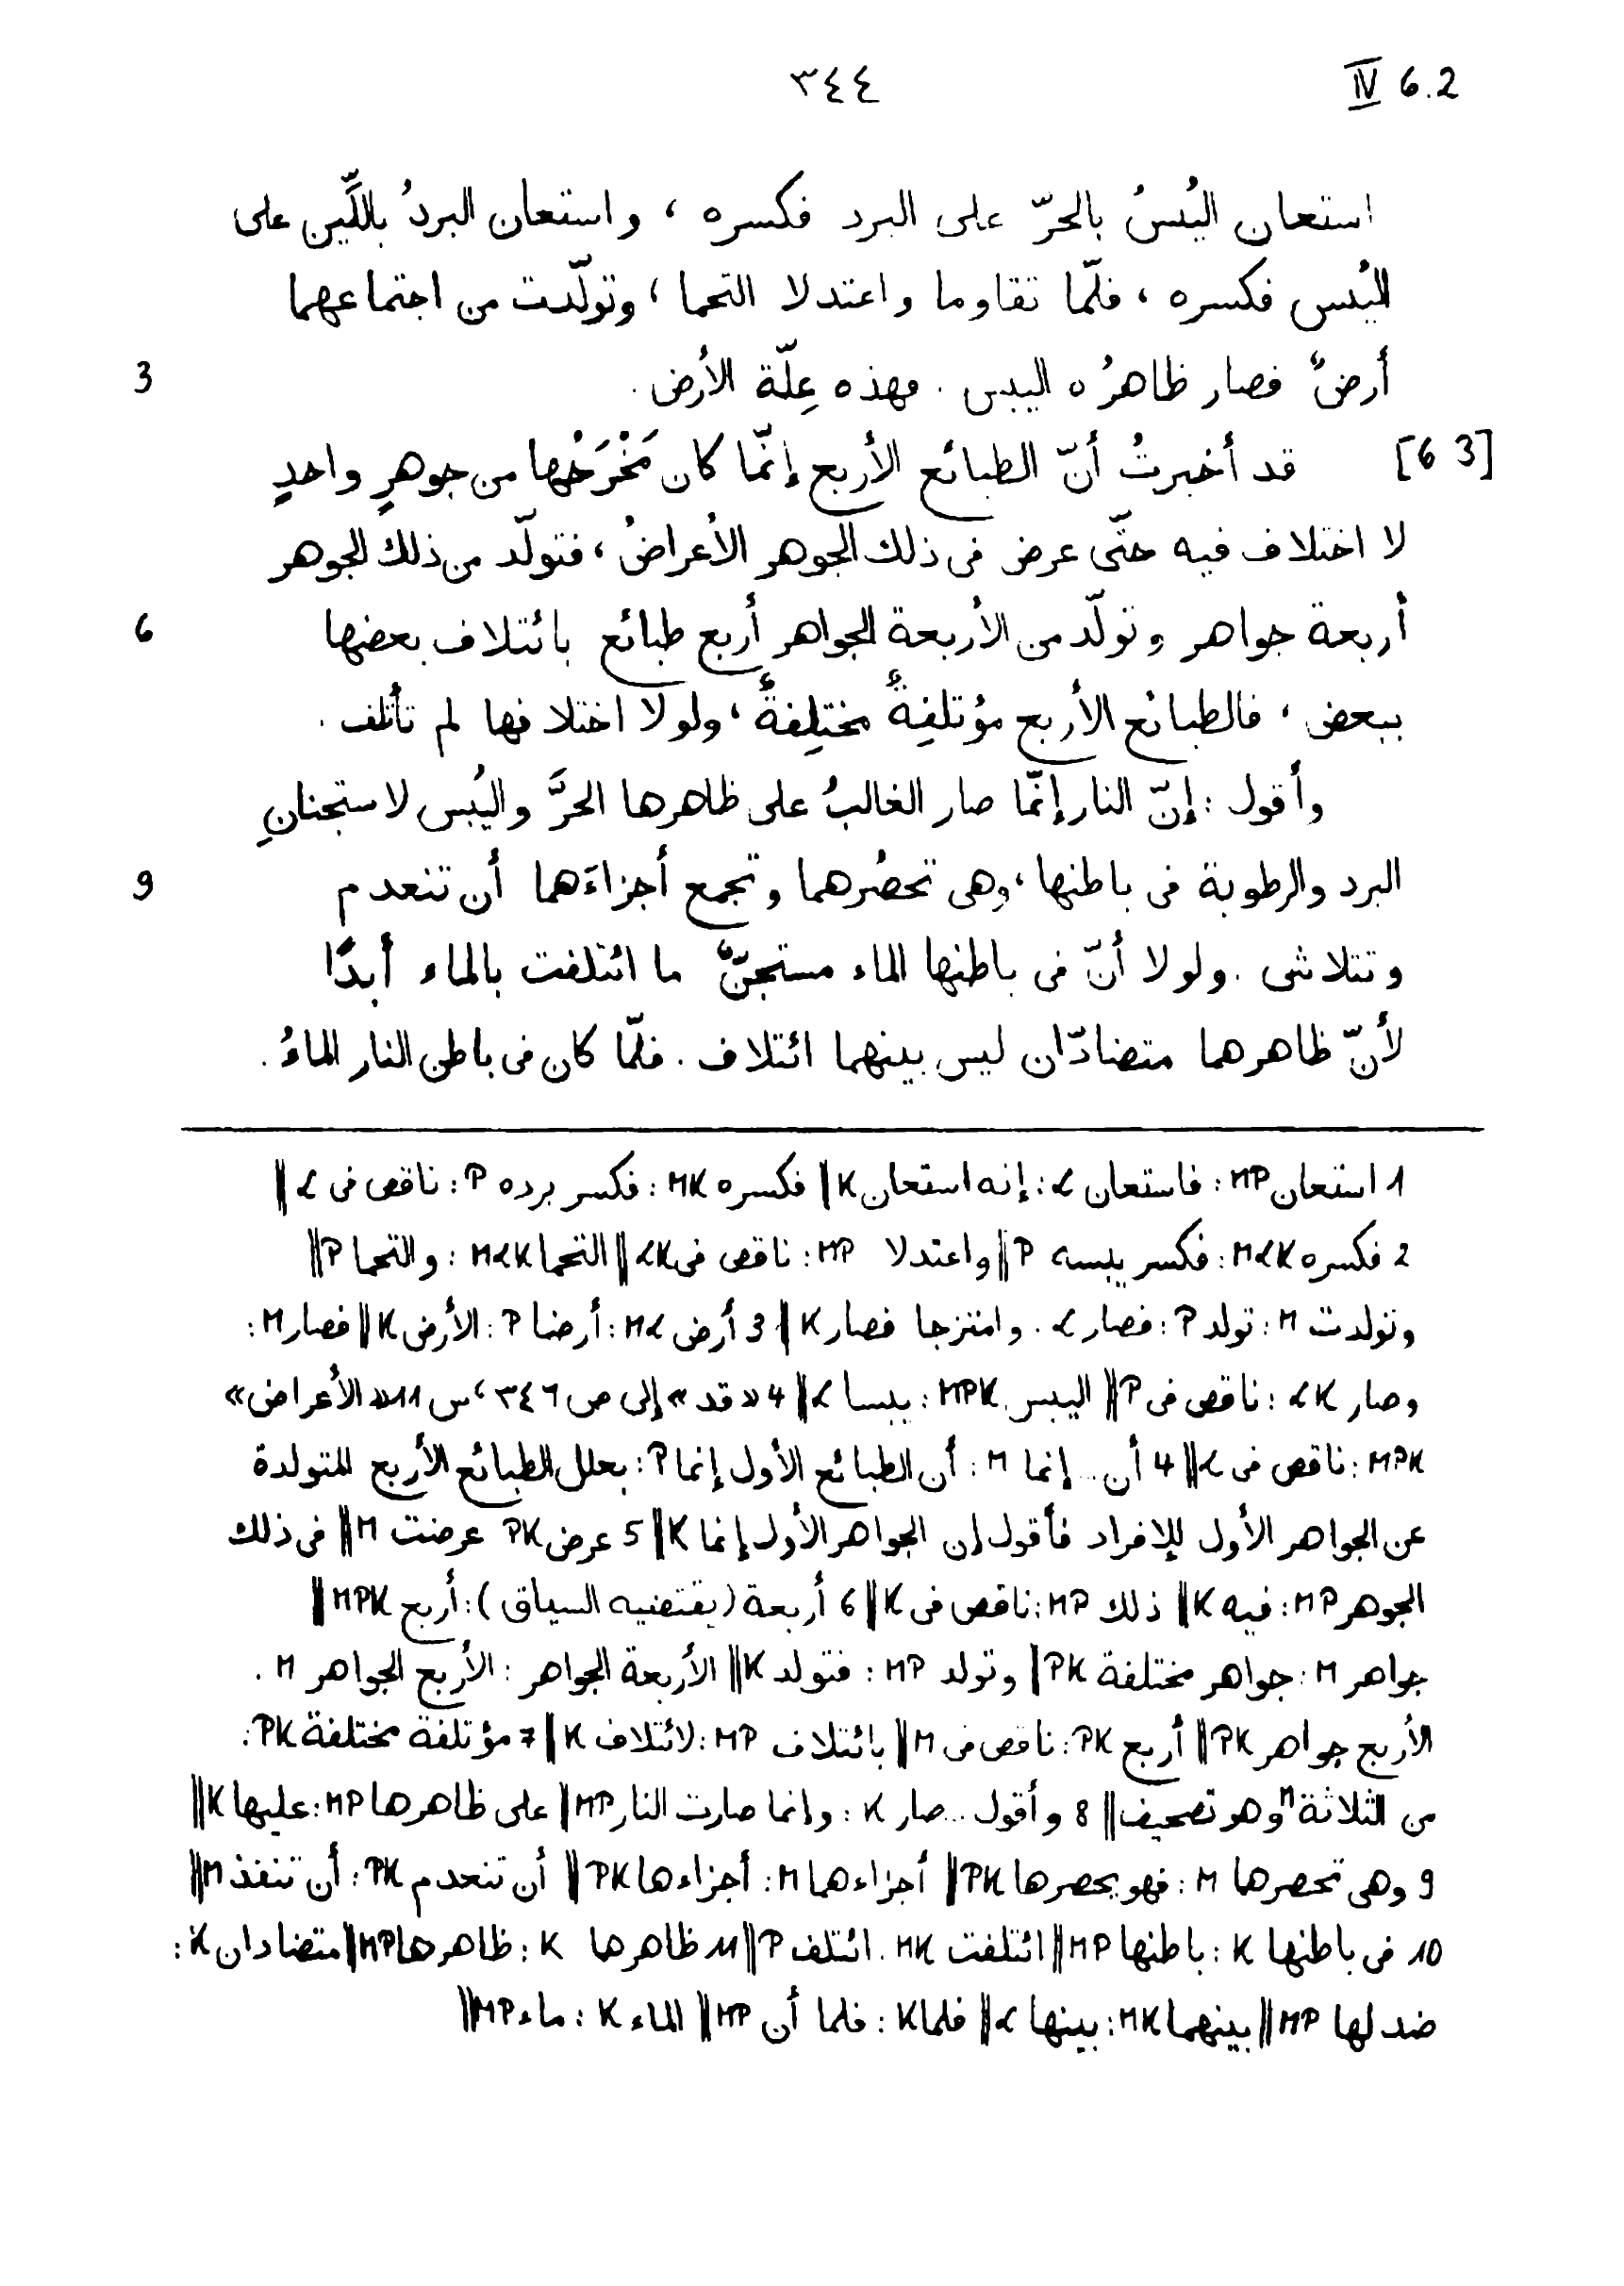 ٣٤٤ IV 6.2
استعان اليُبسُ بالحرّ على البرد فكسره ، واستعان البردُ باللَّيِّن على
اليُبس فكسره ، فلمّا تقاوما واعتدلا التحما ، وتولّدت من اجتماعهما
3 أرضٌ فصار ظاهرُه اليبس . فهذه عِلّة الأرض .
[6 3] قد أخبرتُ أنّ الطبائع الأربع إنّما كان مَخْرَجُها من جوهرٍ واحدٍ
لا اختلاف فيه حتّى عرض فى ذلك الجوهر الأعراضُ ، فتولّد من ذلك الجوهر
6 أربعة جواهر وتولّد من الأربعة الجواهر أربع طبائع بائتلاف بعضها
ببعض ، فالطبائع الأربع مؤتلفِةٌ مختلِفةٌ ، ولولا اختلافها لم تأتلف .
وأقول : إنّ النار إنّما صار الغالبُ على ظاهرها الحرَّ واليُبس لاستجنانِ
9 البرد والرطوبة فى باطنها ، وهى تحصُرهما وتجمع أجزاءَهما أن تنعدم
وتتلاشى . ولولا أنّ فى باطنها الماء مستجنٌّ ما ائتلفت بالماء أبدًا
لأنّ ظاهرهما متضادّان ليس بينهما ائتلاف . فلمّا كان فى باطن النار الماءُ .
1 استعان MP : فاستعان L : إنه استعان K || فكسره MK : فكسر برده P : ناقص فى L ||
2 فكسره MLK : فكسر يبسه P || واعتدلا MP : ناقص فى LK || التحما MLK : والتحما P ||
وتولدت M : تولد P : فصار L . وامتزجا فصار K || 3 أرض ML : أرضا P : الأرض K || فصار M :
وصار LK : ناقص فى P || اليبس MPK : يبسا L || 4 « قد » إلى ص ٣٤٦ ، س 11 « الأعراض »
MPK : ناقص فى L || 4 أن ... إنما M : أن الطبائع الأول إنما P : بعلل الطبائع الأربع المتولدة
عن الجواهر الأول للإفراد فأقول إن الجواهر الأول إنما K || 5 عرض PK عرضت M || فى ذلك
الجوهر MP : فيه K || ذلك MP : ناقص فى K || 6 أربعة (يقتضيه السياق) : أربع MPK ||
جواهر M : جواهر مختلفة PK || وتولد MP : فتولد K || الأربعة الجواهر : الأربع الجواهر M .
الأربع جواهر PK || أربع PK : ناقص فى M || بائتلاف MP : لائتلاف K || 7 مؤتلفة مختلفة PK :
من الثلاثة M وهو تصحيف || 8 وأقول ... صار K : وإنما صارت النار MP || على ظاهرها MP : عليها K ||
9 وهى تحصرهما M : فهو يحصرها PK || أجزاءهما M : أجزاءها PK || أن تنعدم PK : أن تنفذ M ||
10 فى باطنها K : باطنها MP || ائتلفت MK . ائتلف P || 11 ظاهرهما K : ظاهرها MP || متضادان K :
ضد لها MP || بينهما MK : بينها L || فلما K : فلما أن MP || الماء K : ماء MP ||